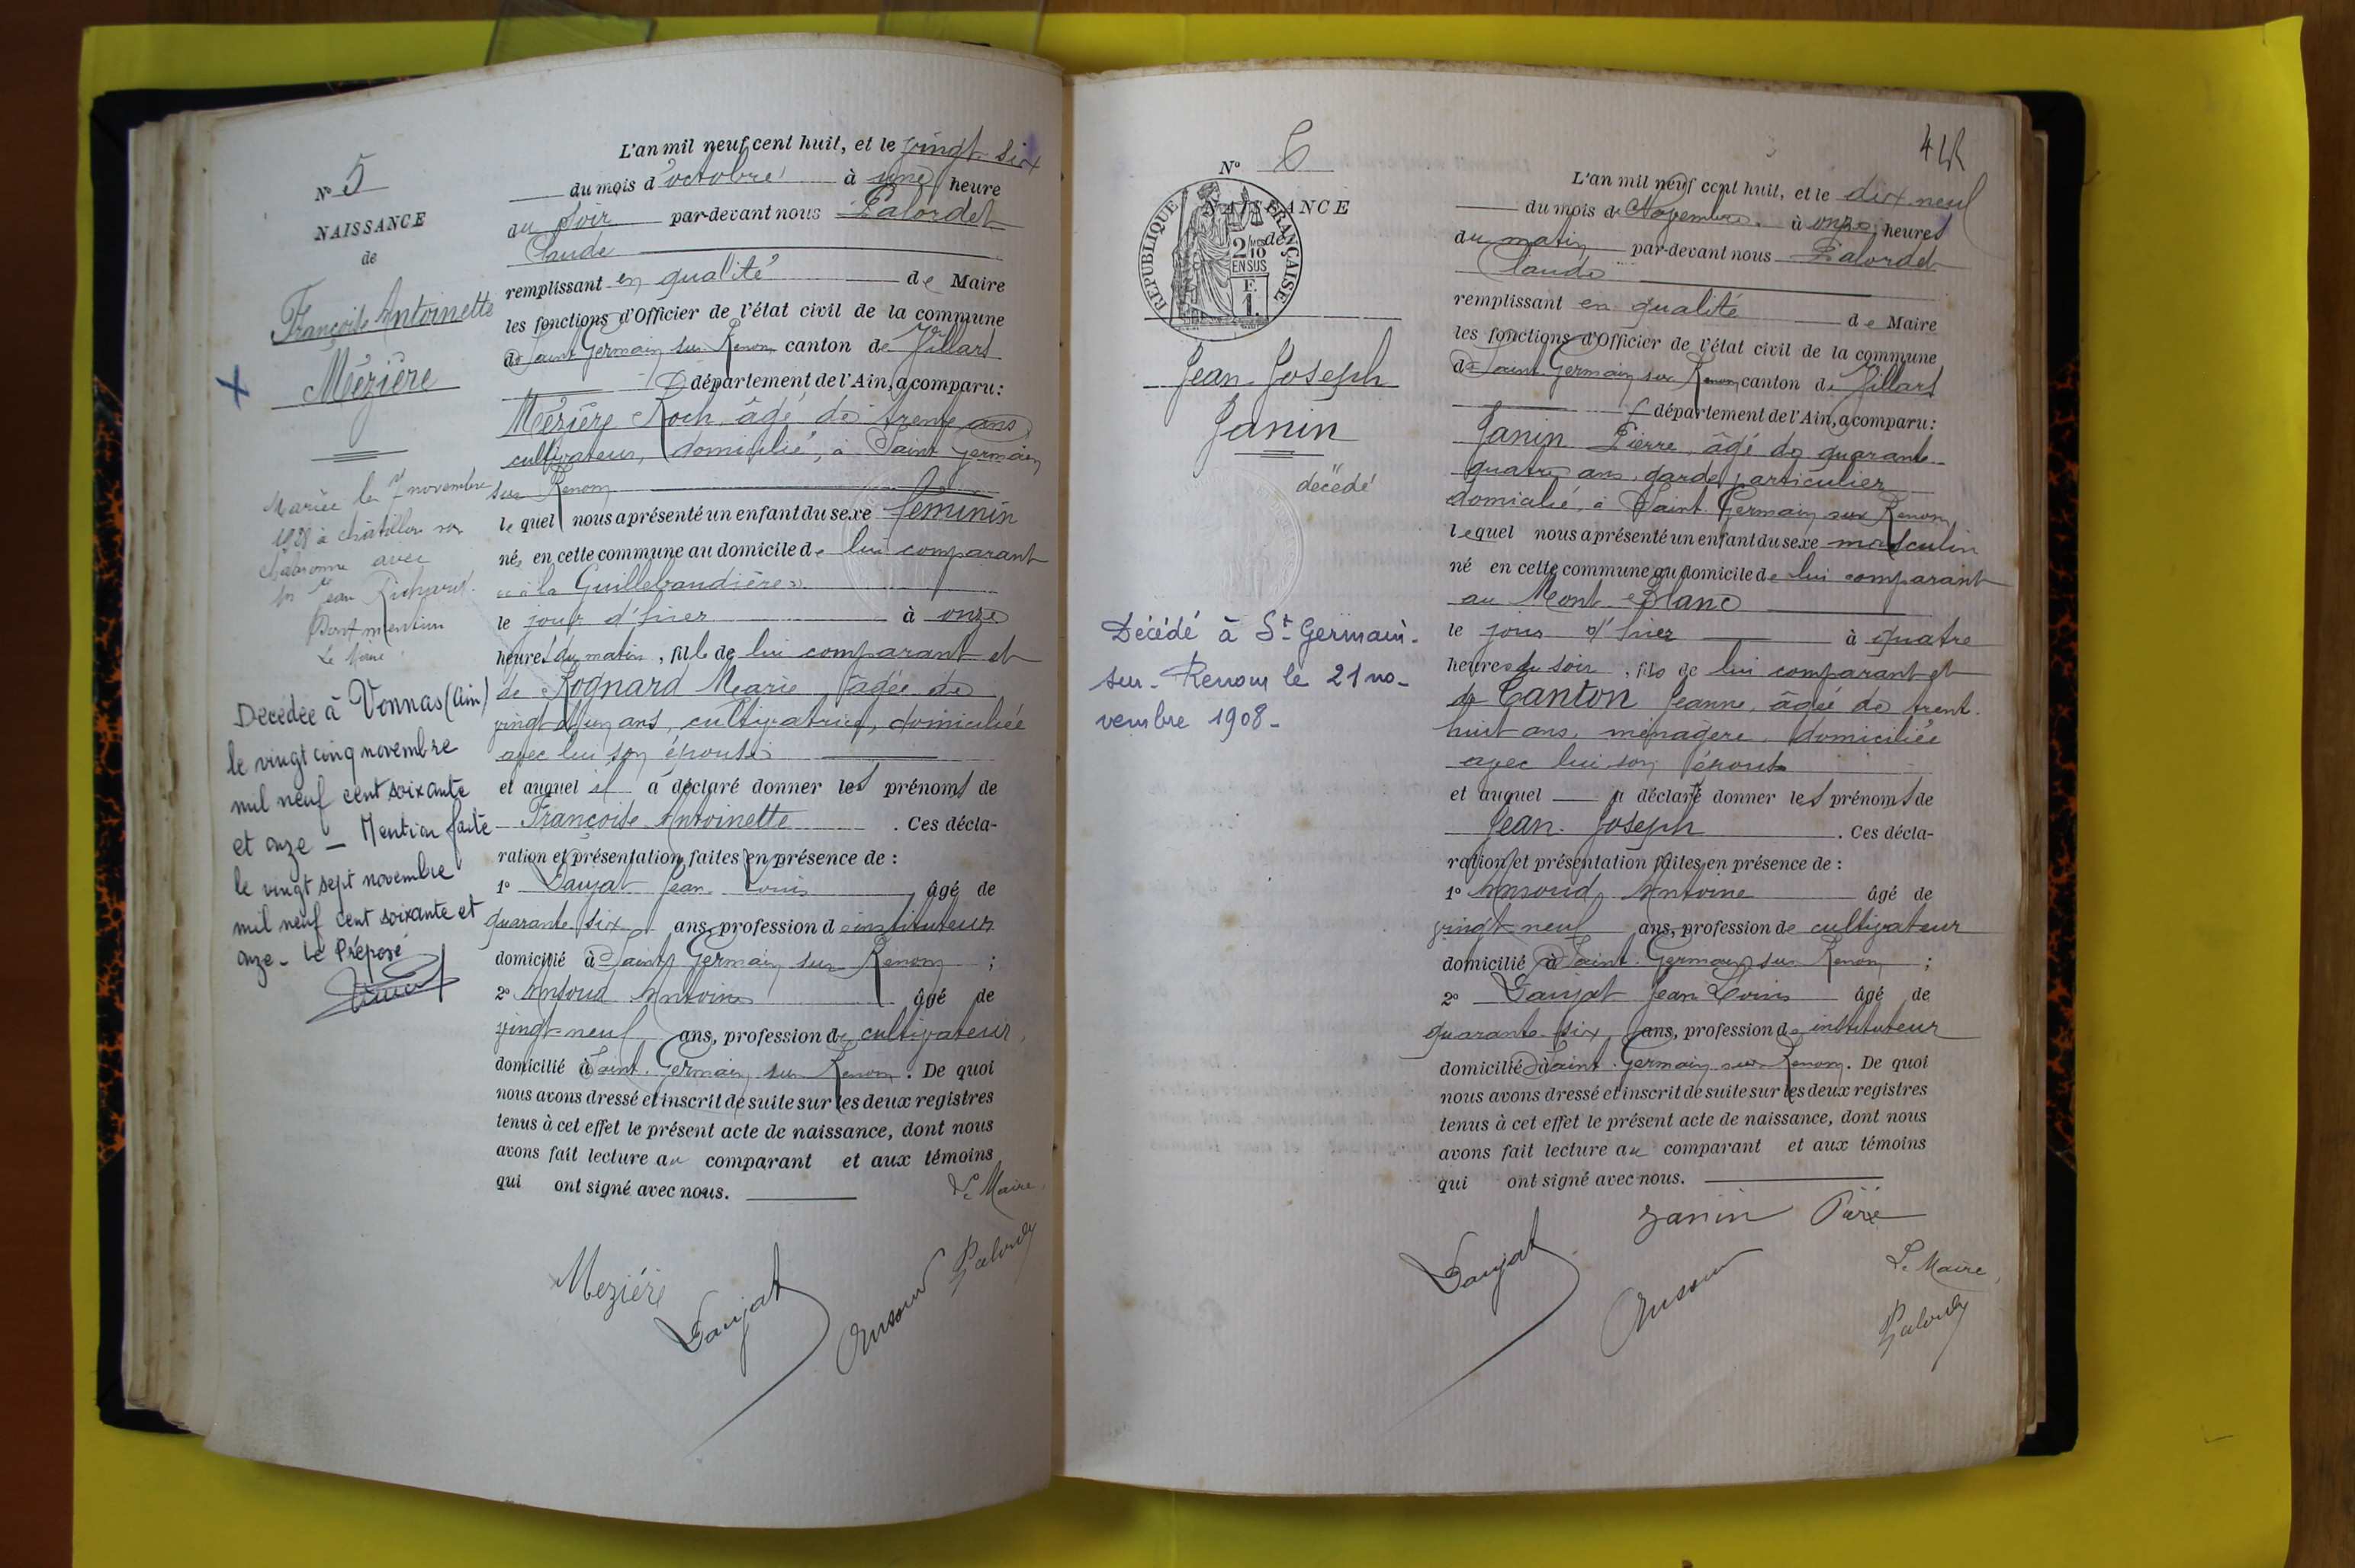 N° 5
NAISSANCE
de
Françoise Antoinette
Mézière
Mariée le 7 novembre
1928 à Châtillon sur
Chalaronne avec
Jean Richard
Dont mention
Le Maire
Décédée à Vonnas (Ain)
le vingt cinq novembre
mil neuf cent soixante
et onze _ Mention faite
le vingt sept novembre
mil neuf cent soixante et
onze _ Le Préposé
L'an mil neuf cent huit, et le vingt-six
du mois d'octobre à une heure
du soir par-devant nous Palordet
Claude
remplissant en qualité de Maire
les fonctions d'Officier de l'état civil de la commune
de Saint Germain sur Renom canton de Villars
département de l'Ain, a comparu:
Mézière Roch âgé de trente ans
cultivateur, domicilié, à Saint Germain
sur Renom
le quel nous a présenté un enfant du sexe féminin
né, en cette commune au domicile de lui comparant
à la Guillebaudière
le jour d'hier à onze
heures du matin, fille de lui comparant et
de Rognard Marie, âgée de
vingt et un ans, cultivatrice, domiciliée
avec lui son épouse
et auquel il a déclaré donner les prénoms de
Françoise Antoinette . Ces décla-
ration et présentation faites en présence de :
1° Daujat Jean Louis âgé de
quarante six ans, profession d'instituteur
domicilié à Saint Germain sur Renom ;
2° Ansoud Antoine âgé de
vingt-neuf ans, profession de cultivateur,
domicilié à Saint Germain sur Renom. De quoi
nous avons dressé et inscrit de suite sur les deux registres
tenus à cet effet le présent acte de naissance, dont nous
avons fait lecture au comparant et aux témoins
qui ont signé avec nous.
Le Maire,
Mezière Daujat Ansoud Palordet
44
N° 6
NAISSANCE
de
RÉPUBLIQUE FRANÇAISE
2/10
EN SUS
F.
1.
Jean Joseph
Janin
décédé
Décédé à St Germain-
sur-Renom le 21 no-
vembre 1908-
L'an mil neuf cent huit, et le dix neuf
du mois de Novembre à onze heures
du matin par-devant nous Palordet
Claude
remplissant en qualité de Maire
les fonctions d'Officier de l'état civil de la commune
de Saint Germain sur Renom canton de Villars
département de l'Ain, a comparu:
Janin Pierre, âgé de quarante-
quatre ans, garde particulier
domicilié, à Saint Germain sur Renom
lequel nous a présenté un enfant du sexe masculin
né en cette commune au domicile de lui comparant
au Mont Blanc
le jour d'hier à quatre
heures du soir, fils de lui comparant et
de Canton Jeanne, âgée de trent-
huit ans, ménagère, domiciliée
avec lui son épouse
et auquel a déclaré donner les prénoms de
Jean Joseph . Ces décla-
ration et présentation faites en présence de :
1° Ansoud, Antoine âgé de
vingt neuf ans, profession de cultivateur
domicilié à Saint Germain sur Renom ;
2° Daujat Jean Louis âgé de
quarante-six ans, profession de instituteur
domicilié à Saint Germain sur Renom. De quoi
nous avons dressé et inscrit de suite sur les deux registres
tenus à cet effet le présent acte de naissance, dont nous
avons fait lecture au comparant et aux témoins
qui ont signé avec nous.
Janin Père
Daujat Ansoud
Le Maire,
Palordet